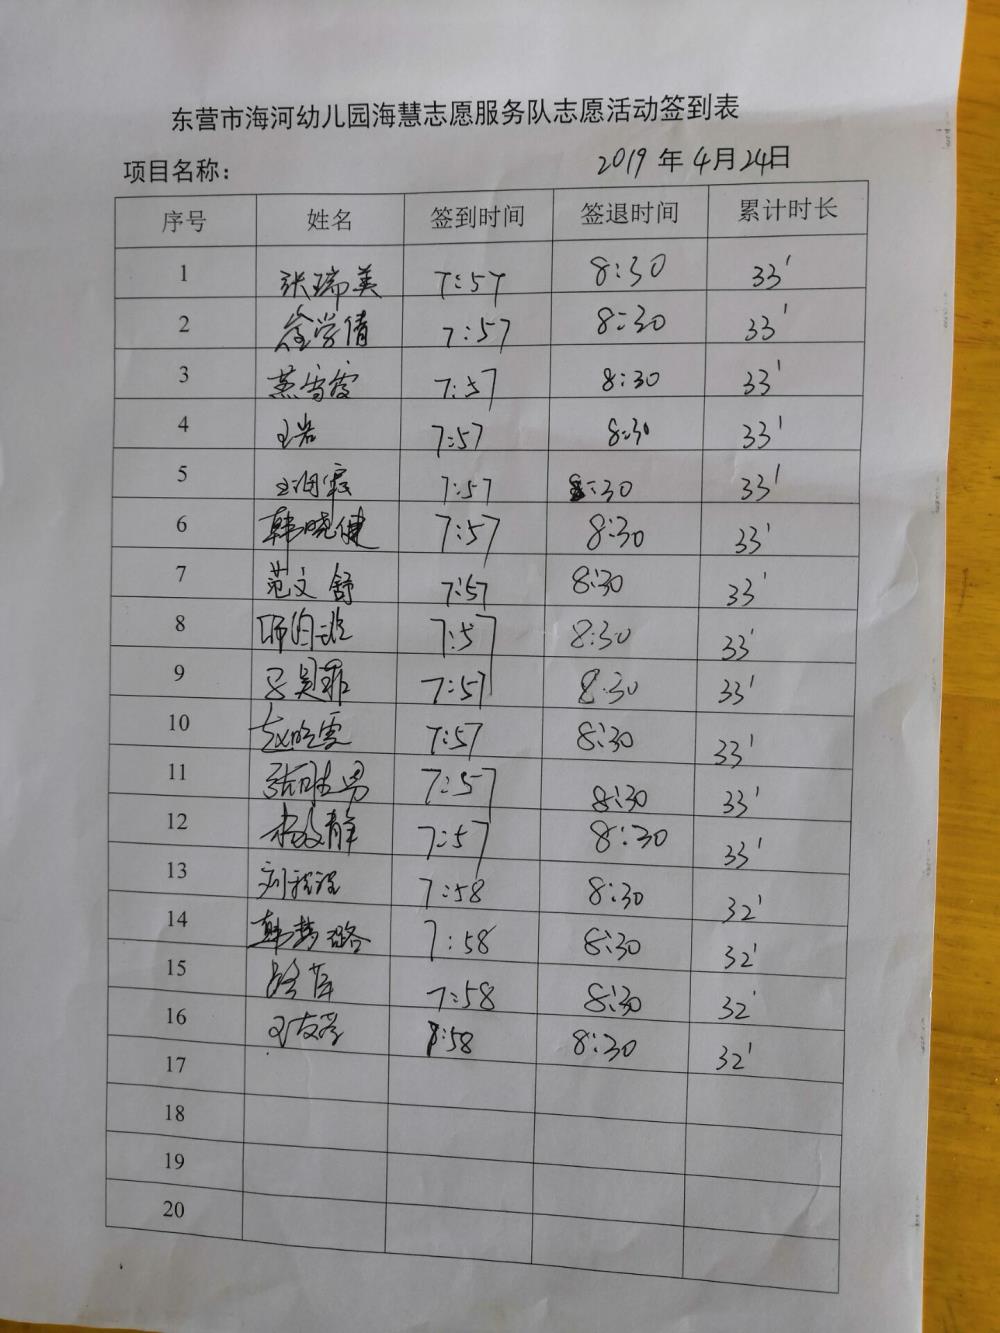 东营市海河幼儿园海慧志愿服务队志愿活动签到表
项目名称： 2019 年 4月 24日
序号 姓名 签到时间 签退时间 累计时长
1 张瑞美 7:57 8:30 33'
2 学倩 7:57 8:30 33'
3 7:57 8:30 33'
4 王岩 7:57 8:30 33'
5 7:57 8:30 33'
6 韩晓健 7:57 8:30 33'
7 范文舒 7:57 8:30 33'
8 7:57 8:30 33'
9 7:57 8:30 33'
10 赵晓雯 7:57 8:30 33'
11 张胜男 7:57 8:30 33'
12 杨文静 7:57 8:30 33'
13 刘程程 7:58 8:30 32'
14 韩梦璐 7:58 8:30 32'
15 7:58 8:30 32'
16 7:58 8:30 32'
17
18
19
20